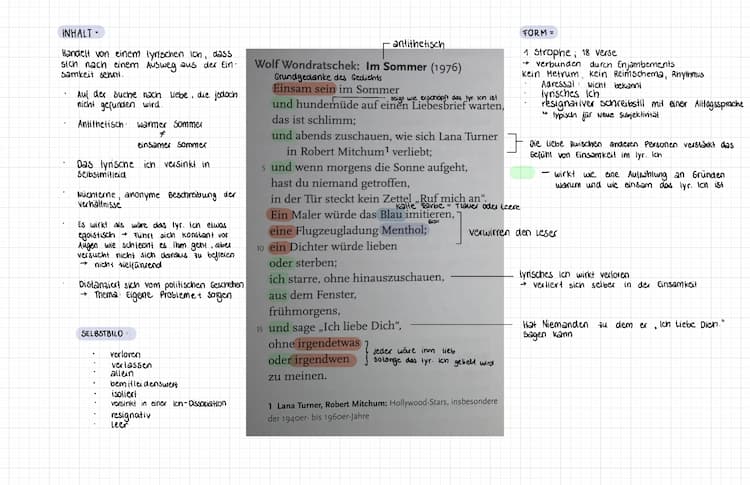 INHALT:
Handelt von einem lyrischen Ich, dass
sich nach einem Ausweg aus der Ein-
samkeit sehnt.
· Auf der Suche nach Liebe, die jedoch
nicht gefunden wird
· Antithetisch: warmer Sommer
≠
einsamer Sommer
· Das lyrische ich versinkt in
Selbstmitleid
· Nüchterne, anonyme Beschreibung der
Verhältnisse
· Es wirkt als wäre das lyr. Ich etwas
egoistisch → führt sich konstant vor
Augen wie schlecht es ihm geht, aber
versucht nicht sich daraus zu befreien
→ nicht zielführend
· Distanziert sich vom politischen Geschehen
→ Thema: Eigene Probleme + Sorgen
SELBSTBILD:
· verloren
· verlassen
· allein
· bemitleidenswert
· isoliert
· versinkt in einer Ich-Dissoziation
· resignativ
· leer
antithetisch
Wolf Wondratschek: Im Sommer (1976)
Grundgedanke des Gedichts
Einsam sein im Sommer
zeigt wie erschöpft das lyr. Ich ist
und hundemüde auf einen Liebesbrief warten,
das ist schlimm;
und abends zuschauen, wie sich Lana Turner
in Robert Mitchum¹ verliebt;
5 und wenn morgens die Sonne aufgeht,
hast du niemand getroffen,
in der Tür steckt kein Zettel „Ruf mich an“.
Kalte Farbe = Trauer oder Leere
Ein Maler würde das Blau imitieren,
eine Flugzeugladung Menthol;
10 ein Dichter würde lieben
oder sterben;
ich starre, ohne hinauszuschauen,
aus dem Fenster,
frühmorgens,
15 und sage „Ich liebe Dich“,
ohne irgendetwas
oder irgendwen
zu meinen.
Jeder wäre ihm lieb
solange das lyr. Ich geliebt wird
1 Lana Turner, Robert Mitchum: Hollywood-Stars, insbesondere
der 1940er- bis 1960er-Jahre
FORM:
1 Strophe, 18 Verse
→ verbunden durch Enjambements
kein Metrum, kein Reimschema, Rhythmus
· Adressat: nicht bekannt
· lyrisches Ich
· resignativer Schreibstil mit einer Alltagssprache
↳ typisch für Neue Subjektivität
Die Liebe zwischen anderen Personen verstärkt das
Gefühl von Einsamkeit im lyr. Ich
– wirkt wie eine Aufzählung an Gründen
warum und wie einsam das lyr. Ich ist
verwirren den Leser
lyrisches Ich wirkt verloren
→ verliert sich selber in der Einsamkeit
Hat Niemanden zu dem er „Ich liebe Dich“
sagen kann